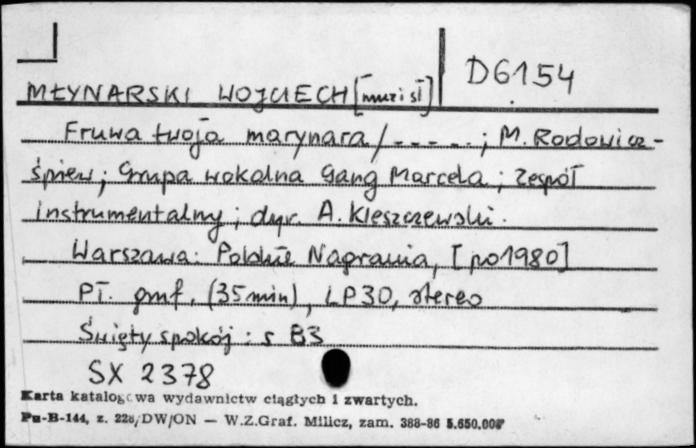 D6154
MŁYNARSKI WOJCIECH [muz i sł]
Fruwa twoja marynara / - - - - - ; M. Rodowicz -
śpiew ; Grupa wokalna Gang Marcela ; zespół
instrumentalny ; dyr. A. Kleszczewski.
Warszawa : Polskie Nagrania, [po 1980]
Pł. gmf. (35 min), LP30, stereo
Święty spokój : s B3
SX 2378
Karta katalogowa wydawnictw ciągłych i zwartych.
Pu-B-144, z. 228/DW/ON — W.Z.Graf. Milicz, zam. 388-86 5.650.000